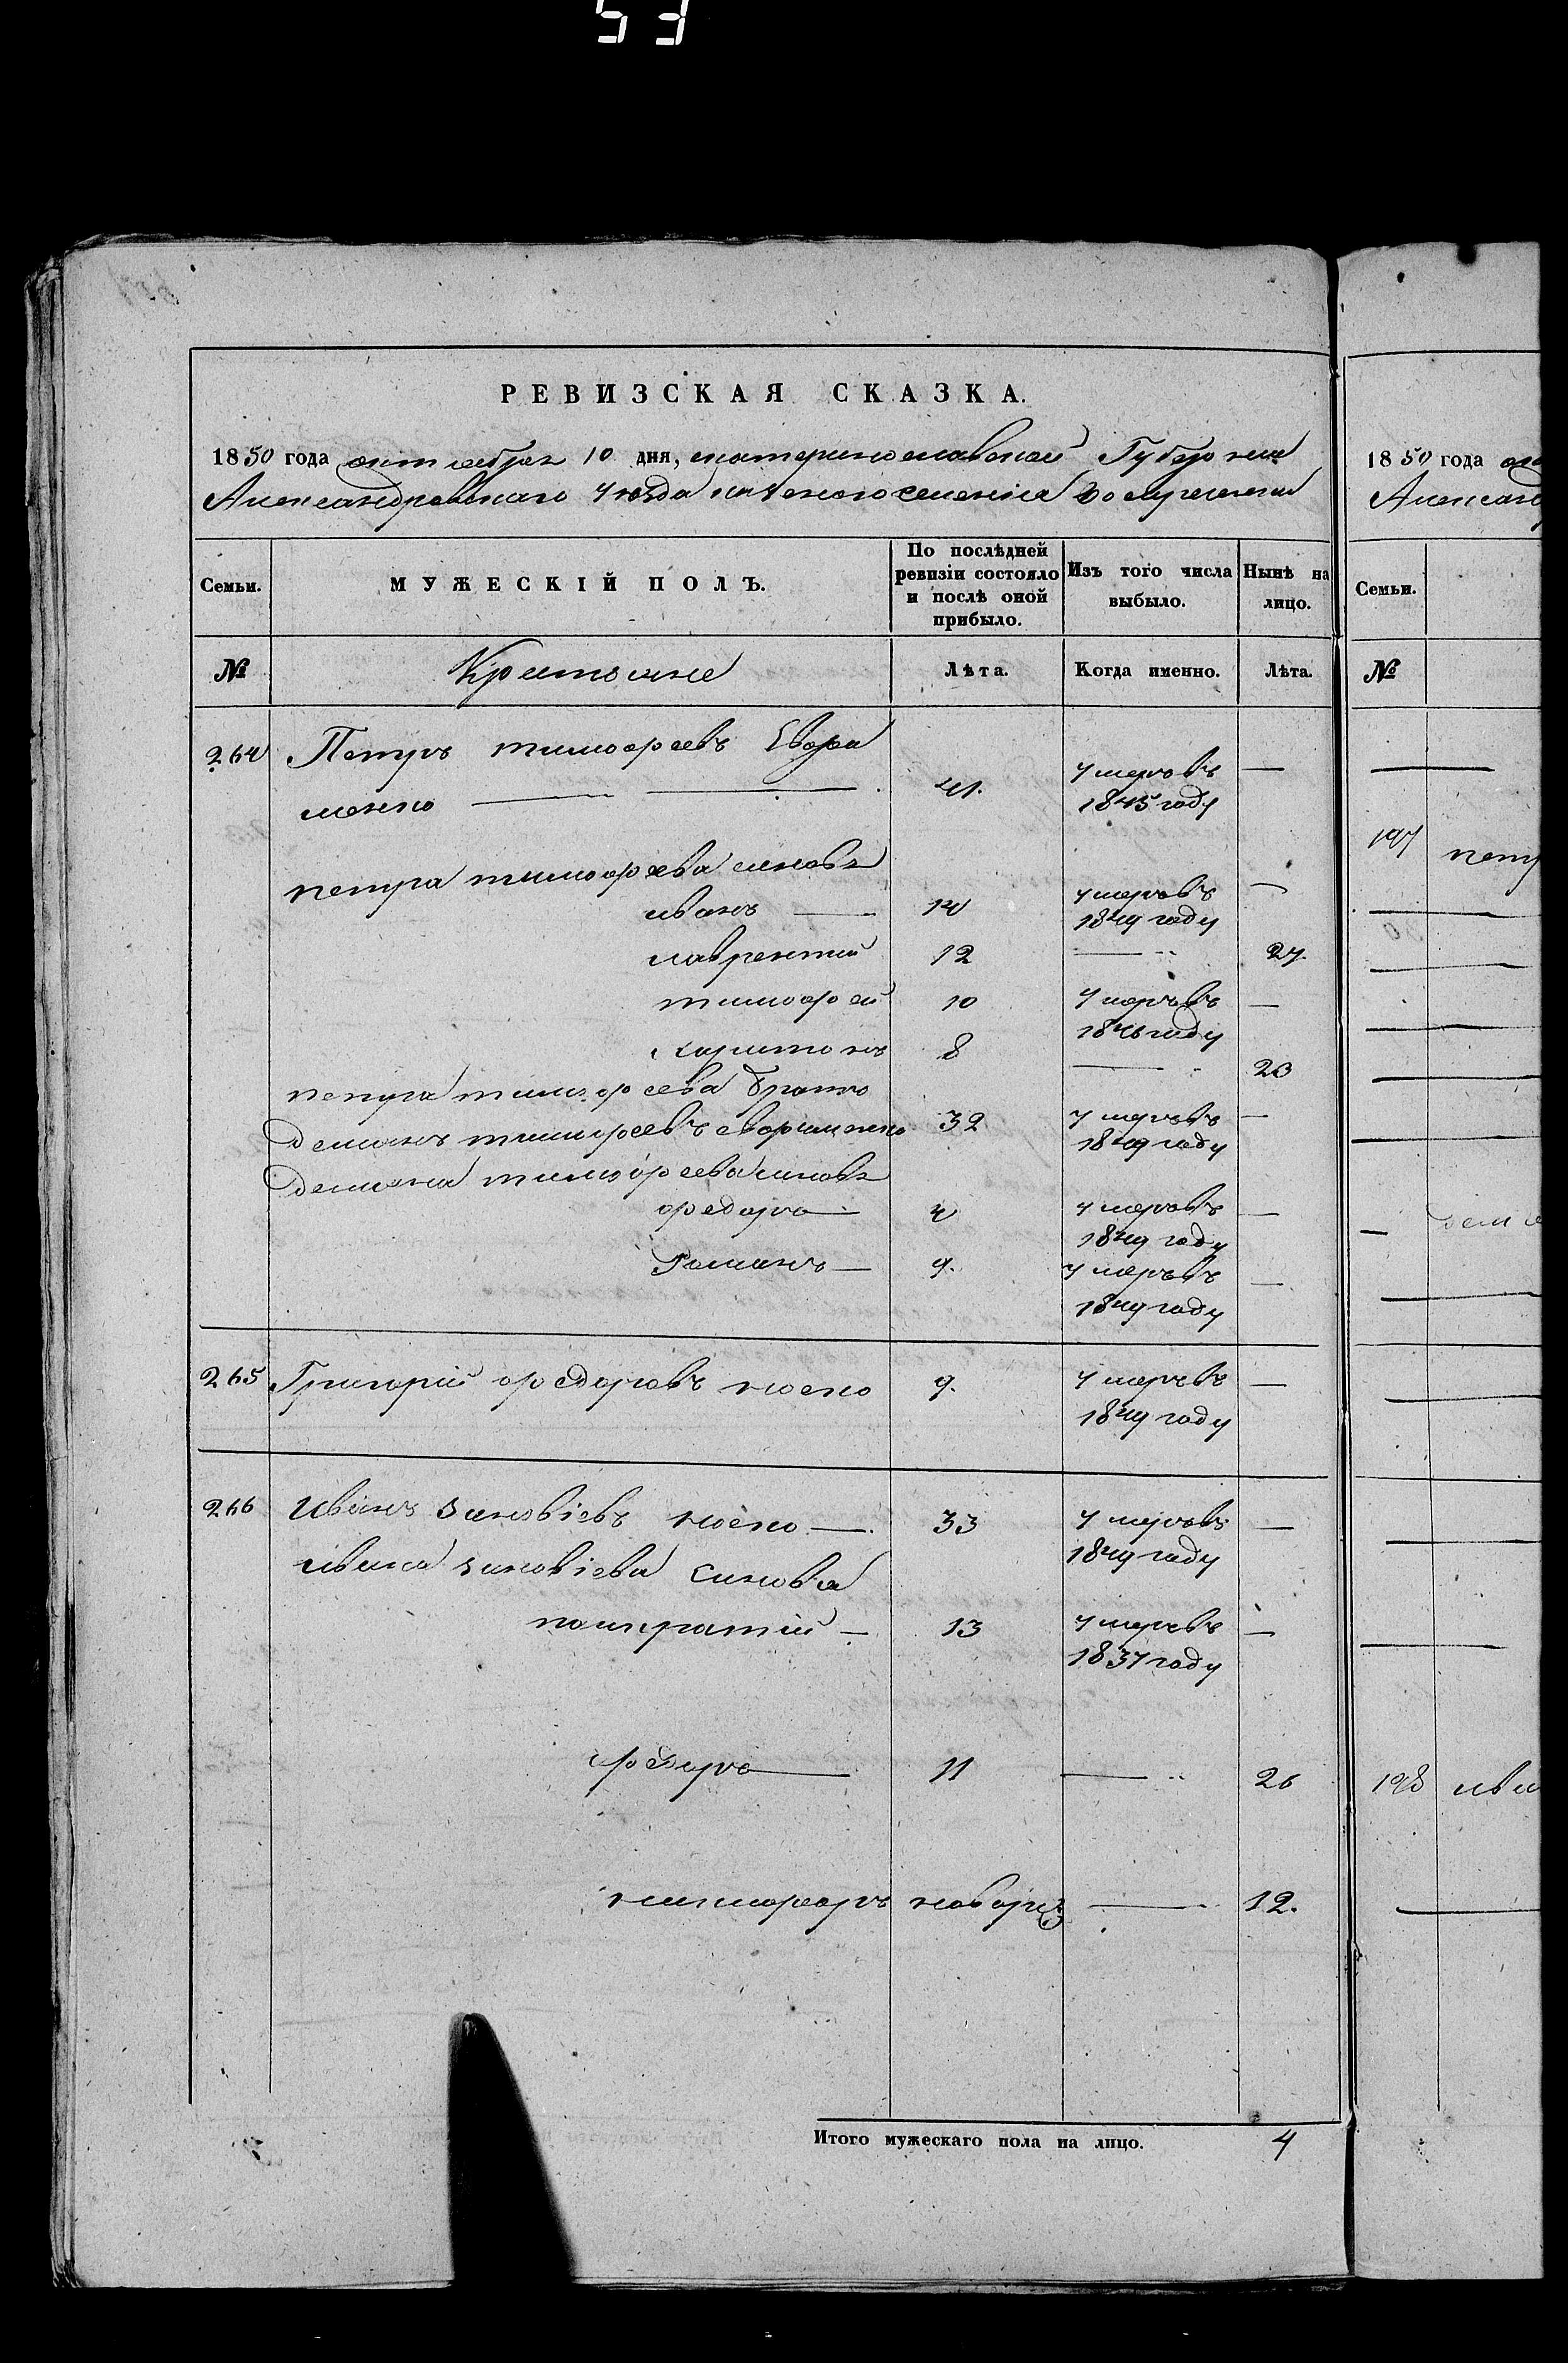 53
РЕВИЗСКАЯ СКАЗКА.
1850 года октября 10 дня, екатеринославской Губернии
Александровскаго уезда казенного селения
Семьи. МУЖЕСКІЙ ПОЛЪ. По послѣдней ревизіи состояло и послѣ оной прибыло. Изъ того числа выбыло. Нынѣ на лицо.
№ Крестьяне Лѣта. Когда именно. Лѣта.
264 Петръ тимофеевъ Ефре
менко 41. умеръ въ 1845 году —
петра тимофеева синовя
иванъ — 14 умеръ въ 1849 году —
лаврентий 12 — 27.
тимофей 10 умеръ въ 1846 году —
харитонъ 8 — 23
петра тимофеева братъ
демянъ тимофеевъ ефрименко 32 умеръ въ 1849 году —
демяна тимофеева синовя
федоръ — 4 умеръ въ 1849 году —
Романъ — 9. умеръ въ 1849 году —
265 Григорий федоровъ носко 9. умеръ въ 1849 году —
266 Иванъ зиновіевъ носко — 33 умеръ въ 1849 году —
ивана зиновіева синовя
панкратий — 13 умеръ въ 1837 году —
федоръ — 11 — 26
никифоръ новорож — 12.
Итого мужескаго пола на лицо. 4
1850 года
Александ
Семьи.
№
197 петр
демя
198 ива